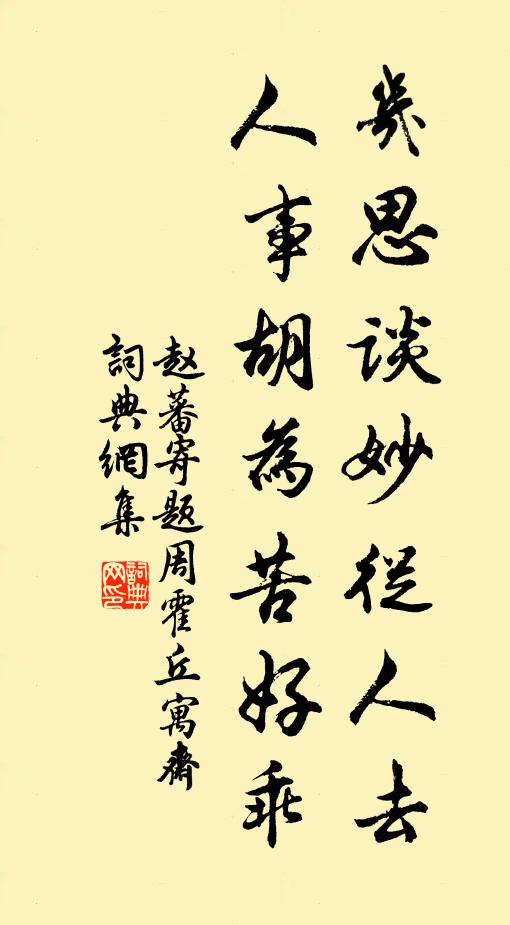 幾思談妙從人去
人事胡為苦好乖
赵蕃寄题周霍丘寓齋
詞典網集
詞典
网印